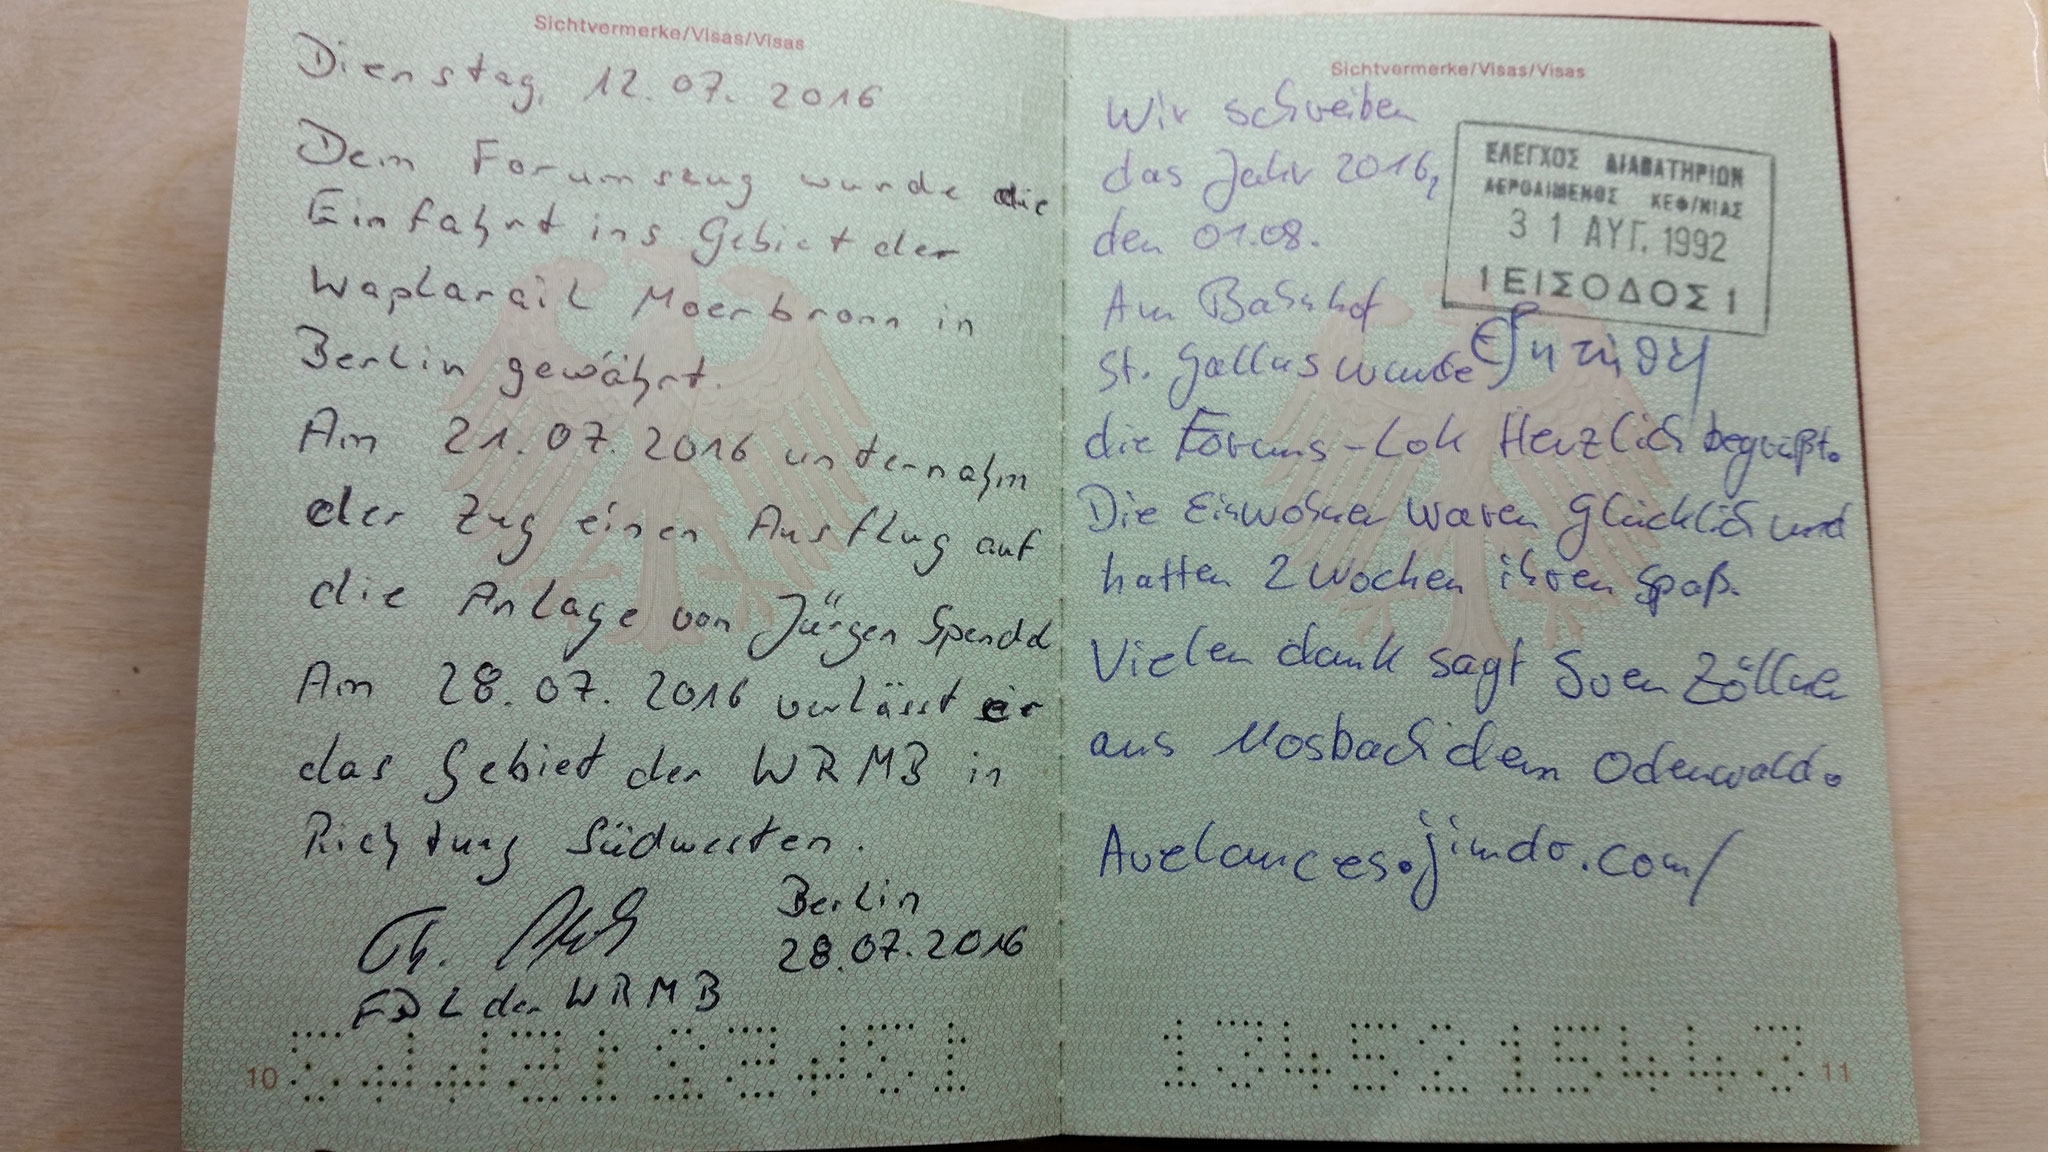 Sichtvermerke/Visas/Visas
Dienstag, 12.07.2016
Dem Forumszug wurde die
Einfahrt ins Gebiet der
Waplarail Moerbronn in
Berlin gewährt.
Am 21.07.2016 unternahm
der Zug einen Ausflug auf
die Anlage von Jürgen
Am 28.07.2016 verlässt er
das Gebiet der WRMB in
Richtung Südwesten.
Th.
Berlin
28.07.2016
FDL der WRMB
10
Sichtvermerke/Visas/Visas
Wir schreiben
das Jahr 2016,
den 01.08.
Am Bahnhof
St. Gallus wurde
die Forums-Lok Herzlich begrüßt.
Die Einwohner waren glücklich und
hatten 2 Wochen ihren Spaß.
Vielen dank sagt Sven Zöllner
aus Mosbach dem Odenwald.
Avelances.jimdo.com/
ΕΛΕΓΧΟΣ ΔΙΑΒΑΤΗΡΙΩΝ
ΑΕΡΟΛΙΜΕΝΟΣ ΚΕΦ/ΝΙΑΣ
31 ΑΥΓ. 1992
1 ΕΙΣΟΔΟΣ 1
1345215443
11